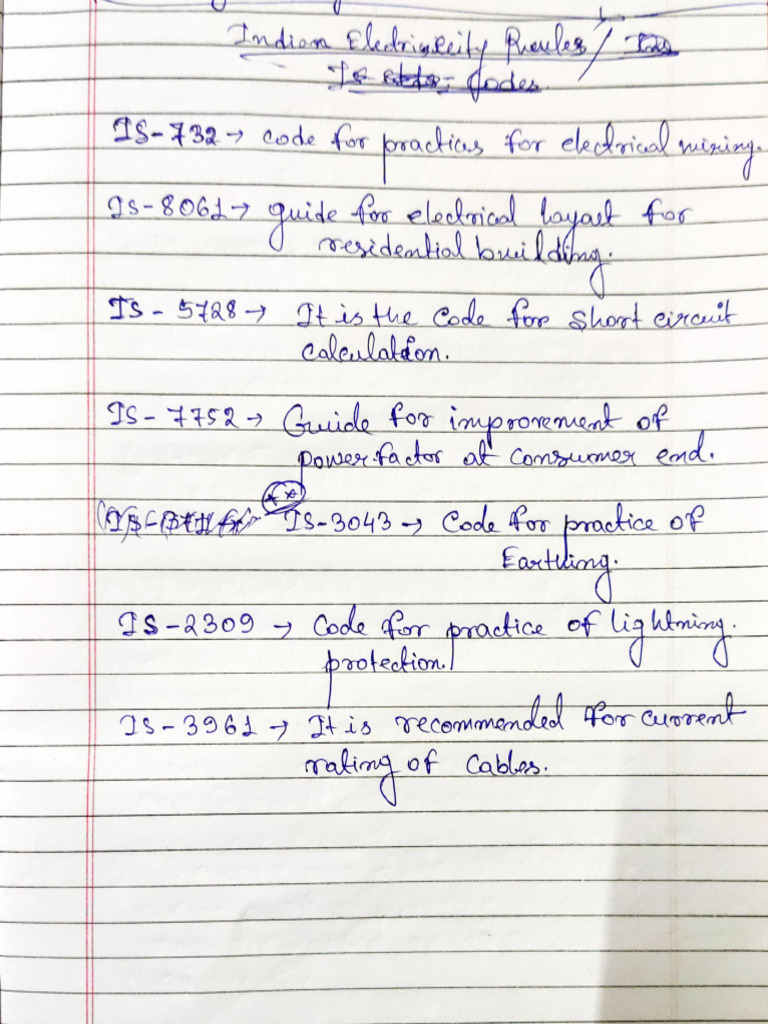 Indian Electricity Rules /
Codes
IS-732 → code for practices for electrical wiring.
IS-8061 → guide for electrical layout for
residential building.
IS - 5728 → It is the code for short circuit
calculation.
IS - 7752 → Guide for improvement of
power factor at consumer end.
** IS-3043 → Code for practice of
Earthing.
IS-2309 → Code for practice of lightning.
protection.
IS-3961 → It is recommended for current
rating of cables.